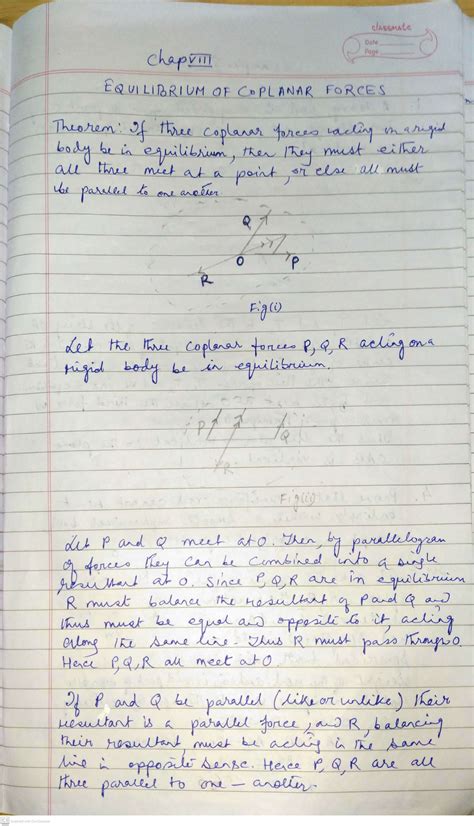 classmate
Date
Page
Chap VIII
EQUILIBRIUM OF COPLANAR FORCES
Theorem: If three coplanar forces acting on a rigid
body be in equilibrium, then they must either
all three meet at a point, or else all must
be parallel to one another
Q
O
P
R
Fig(i)
Let the three coplanar forces P, Q, R acting on a
rigid body be in equilibrium.
P
Q
R
Fig(ii)
Let P and Q meet at O. Then, by parallelogram
of forces they can be combined into a single
resultant at O. Since P, Q, R are in equilibrium
R must balance the resultant of P and Q and
thus must be equal and opposite to it, acting
along the same line. Thus R must pass through O.
Hence P, Q, R all meet at O.
If P and Q be parallel (like or unlike) their
resultant is a parallel force, and R, balancing
their resultant, must be acting in the same
line in opposite sense. Hence P, Q, R are all
three parallel to one - another.